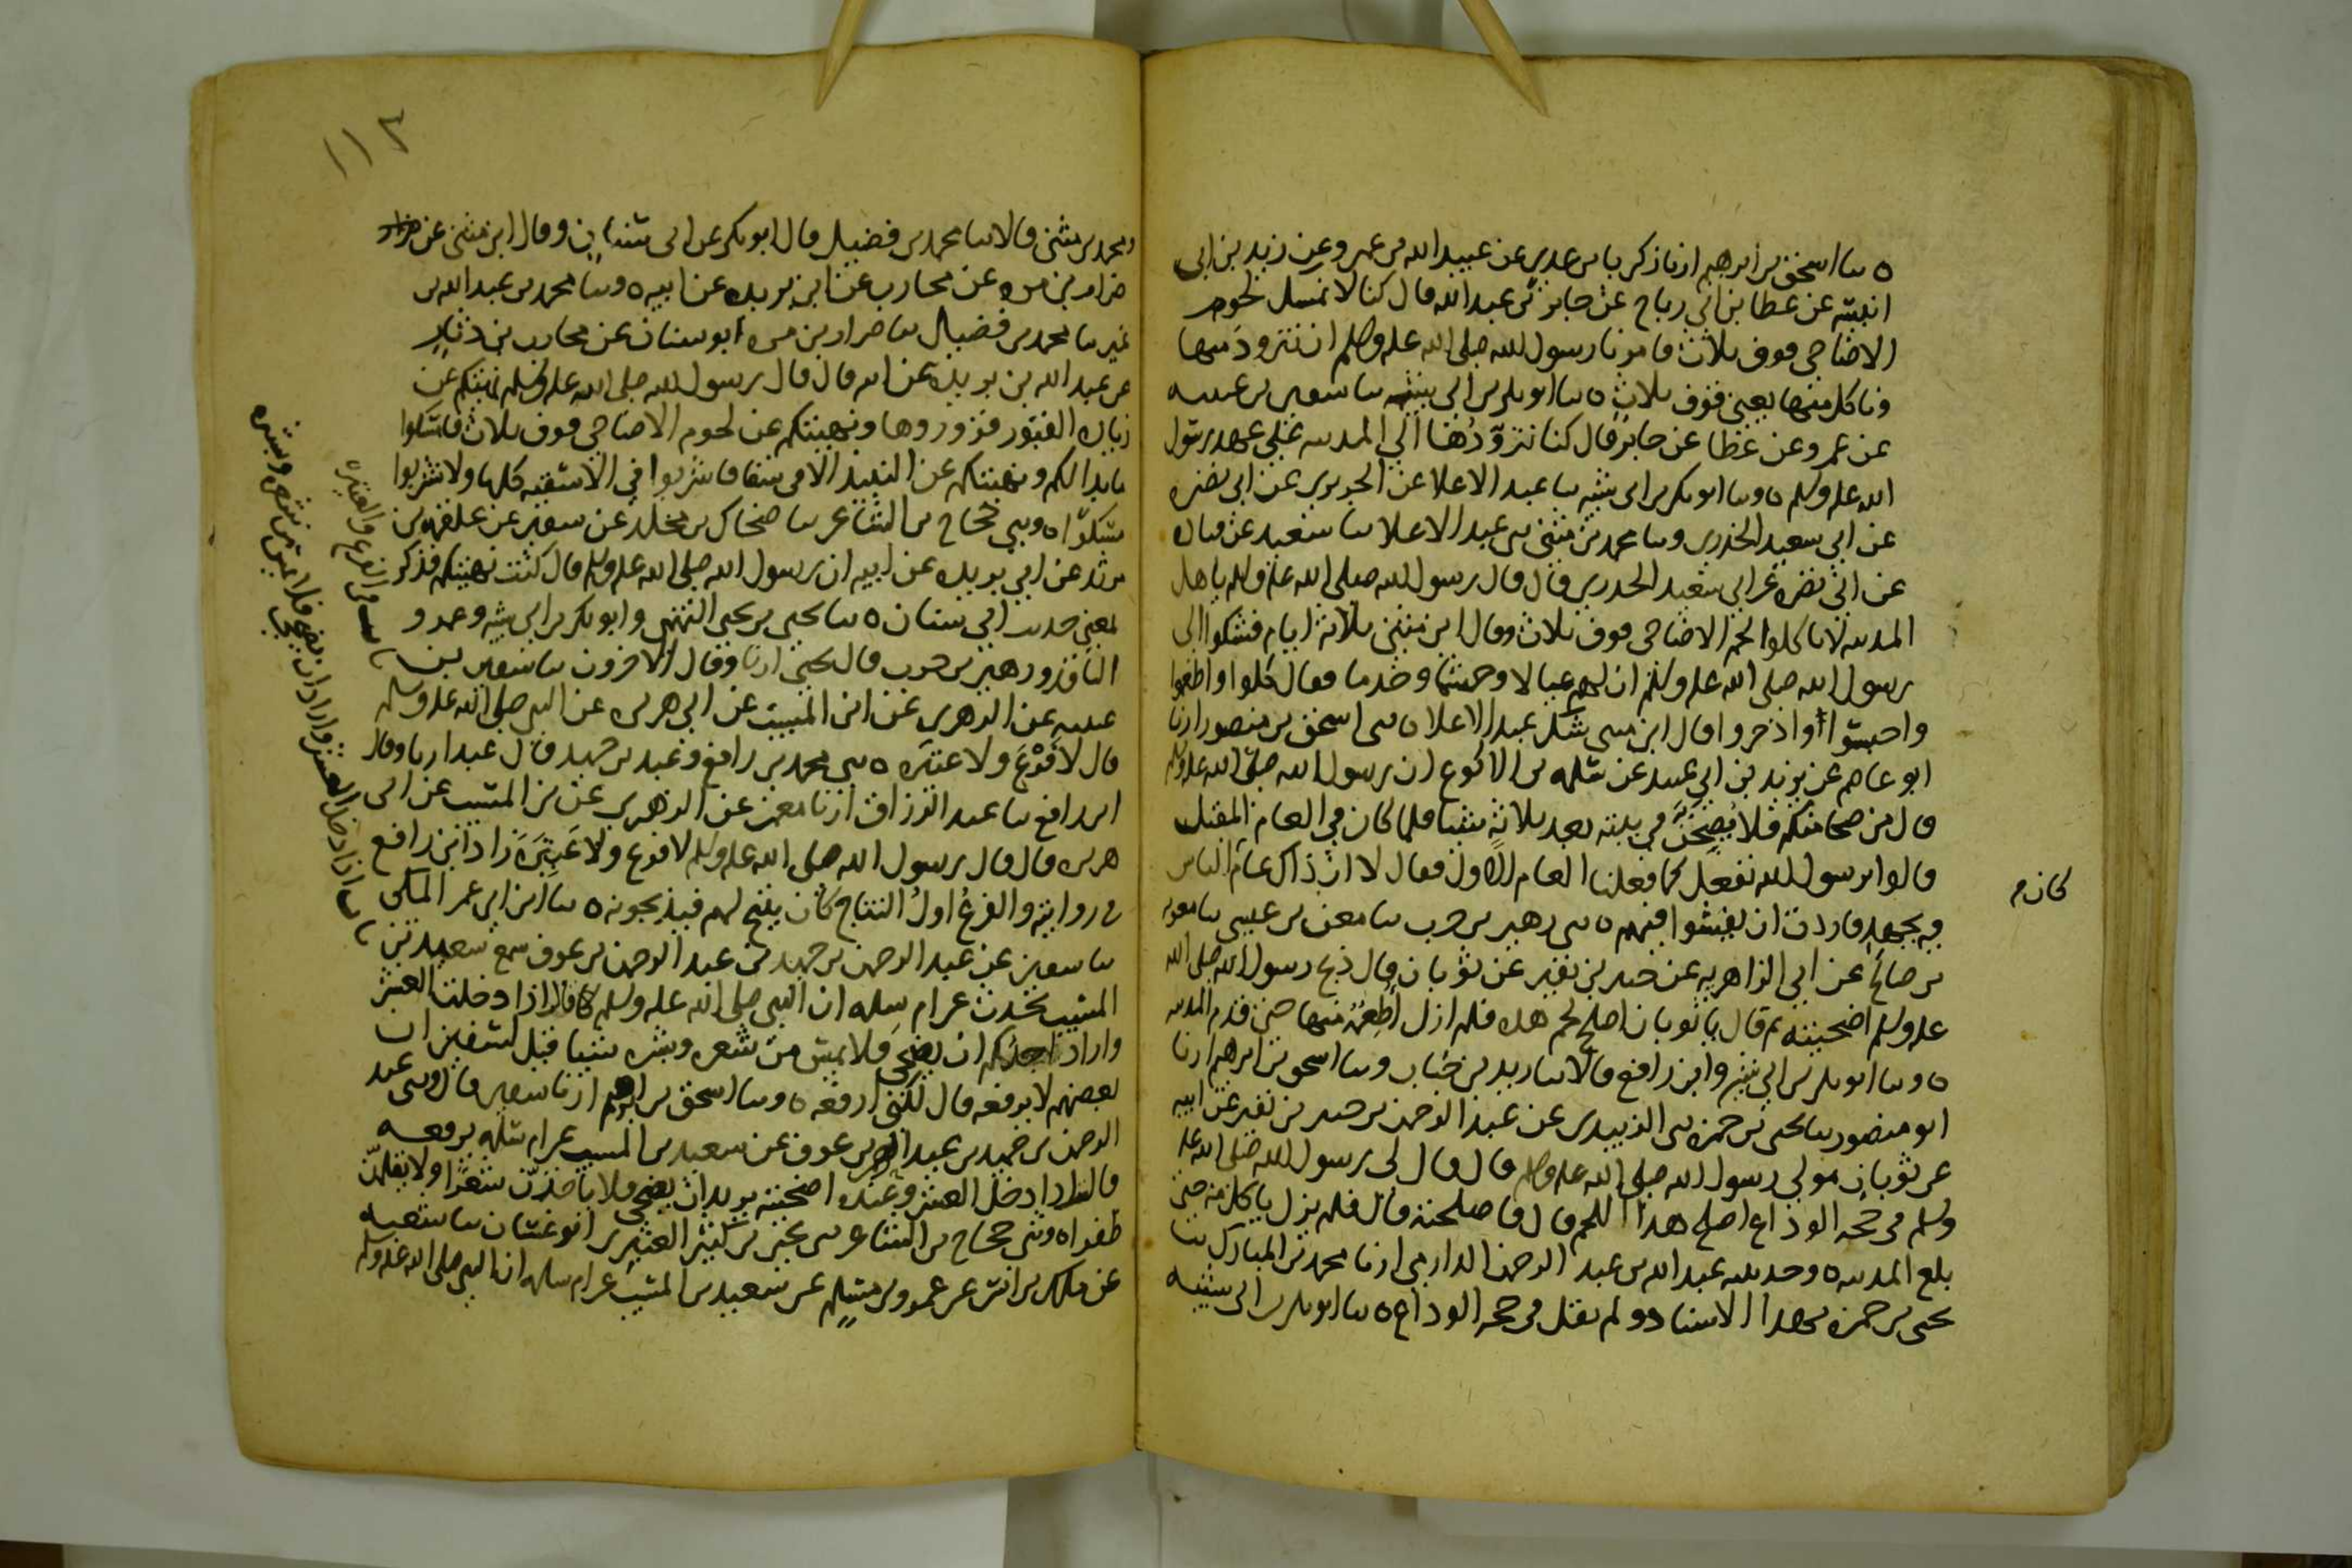 ه نا اسحق بن ابرهيم ارنا زكريا بن عدي عن عبيد الله بن عمرو عن زيد بن ابي
انيسه عن عطا بن ابي رباح عن جابر بن عبد الله قال كنا لا نمسك لحوم
الاضاحي فوق ثلاث فامرنا رسول الله صلى الله عليه وسلم ان نتزود منها
وناكل منها يعني فوق ثلاث ه نا ابو بكر بن ابي شيبه نا سفين بن عيينه
عن عمرو عن عطا عن جابر قال كنا نتزودها الي المدينه علي عهد رسول
الله عليه وسلم ه ونا ابو بكر بن ابي شيبه نا عبد الاعلا عن الجريري عن ابي نضره
عن ابي سعيد الخدري ونا محمد بن مثنى نى عبد الاعلا نا سعيد عن قتاده
عن ابي نضره عن ابي سعيد الخدري قال قال رسول الله صلى الله عليه وسلم يا اهل
المدينه لا تاكلوا لحم الاضاحي فوق ثلاث وقال ابن مثنى ثلاثة ايام فشكوا الى
رسول الله صلى الله عليه وسلم ان لهم عيالا وحشما وخدما فقال كلوا واطعموا
واحبسوا او اذخروا قال ابن مثنى شك عبد الاعلا ه نى اسحق بن منصور ارنا
ابو عاصم عن يزيد بن ابي عبيد عن سلمه بن الاكوع ان رسول الله صلى الله عليه وسلم
قال من ضحا منكم فلا يصبحن في بيته بعد ثلاثة شيئا فلما كان في العام المقبل
قالوا يرسول الله نفعل كما فعلنا العام الاول فقال لا ان ذاك عام الناس
كان م
فيه بجهد فاردت ان يفشوا فيهم ه نى زهير بن حرب نا معن بن عيسى نا معويه
بن صالح عن ابي الزاهريه عن جبير بن نفير عن ثوبان قال ذبح رسول الله صلى الله
عليه وسلم اضحيته ثم قال يا ثوبان اصلح لحم هذه فلم ازل اطعمه منها حتى قدم المدينه
ه ونا ابو بكر بن ابي شيبه وابن رافع قالا نا زيد بن حباب ونا اسحق بن ابرهيم ارنا
ابو منصور نا يحيى بن حمزه نى الزبيدي عن عبد الرحمن بن جبير بن نفير عن ابيه
عن ثوبان مولي رسول الله صلى الله عليه وسلم قال قال لى رسول الله صلى الله عليه
وسلم في حجه الوداع اصلح هذا اللحم قال فاصلحته قال فلم يزل ياكل منه حتى
بلغ المدينه ه وحدثنيه عبد الله بن عبد الرحمن الدارمي ارنا محمد بن المبارك نا
يحيى بن حمزه بهذا الاسناد ولم يقل في حجه الوداع ه نا ابو بكر بن ابى شيبه
١١٢
ومحمد بن مثنى قالا نا محمد بن فضيل قال ابو بكر عن ابى سنان وقال ابن مثنى عن
ضرار بن مره عن محارب عن ابن بريده عن ابيه ه ونا محمد بن عبد الله بن
نمير نا محمد بن فضيل نا ضرار بن مره ابو سنان عن محارب بن دثار
عن عبد الله بن بريده عن ابيه قال قال رسول الله صلى الله عليه وسلم نهيتكم عن
زياره القبور فزوروها ونهيتكم عن لحوم الاضاحي فوق ثلاث فامسكوا
ما بدا لكم ونهيتكم عن النبيذ الا في سقا فاشربوا في الاسقيه كلها ولا تشربوا
مسكرا ه ونى حجاج بن الشاعر نا ضحاك بن مخلد عن سفين عن علقمه بن
مرثد عن ابي بريده عن ابيه ان رسول الله صلى الله عليه وسلم قال كنت نهيتكم فذكر
بمعنى حديث ابي سنان ه نا يحيى بن يحيى التميمى وابو بكر بن ابى شيبه وعمرو
باب في الفرع والعتيره
الناقد وزهير بن حرب قال يحيى ارنا وقال الاخرون نا سفين بن
عيينه عن الزهرى عن ابن المسيب عن ابي هريره عن النبى صلى الله عليه وسلم
قال لا فرع ولا عتيره ه نى محمد بن رافع وعبد بن حميد قال عبد ارنا وقال
ابن رافع نا عبد الرزاق ارنا معمر عن الزهرى عن بن المسيب عن ابى
هريره قال قال رسول الله صلى الله عليه وسلم لا فرع ولا عتيره زاد ابن رافع
في روايته والفرع اول النتاج كان ينتج لهم فيذبحونه ه نا ابن ابى عمر المكى
باب اذا دخل العشر واراد ان يضحي فلا يمس من شعره وبشره
نا سفين عن عبد الرحمن بن حميد بن عبد الرحمن بن عوف سمع سعيد بن
المسيب يحدث عن ام سلمه ان النبى صلى الله عليه وسلم قال اذا دخلت العشر
واراد احدكم ان يضحى فلا يمس من شعره وبشره شيئا قيل لسفين ان
بعضهم لا يرفعه قال لكنى ارفعه ه ونا اسحق بن ابرهيم ارنا سفين قال ونى عبد
الرحمن بن حميد بن عبد الرحمن بن عوف عن سعيد بن المسيب عن ام سلمه يرفعه
قال اذا دخل العشر وعنده اضحيته يريد ان يضحى فلا ياخذن شعرا ولا يقلمن
ظفرا ه ونى حجاج بن الشاعر نى يحيى بن كثير العنبرى ابو غسان نا شعبه
عن ملك بن انس عن عمرو بن مسلم عن سعيد بن المسيب عن ام سلمه ان النبى صلى الله عليه وسلم